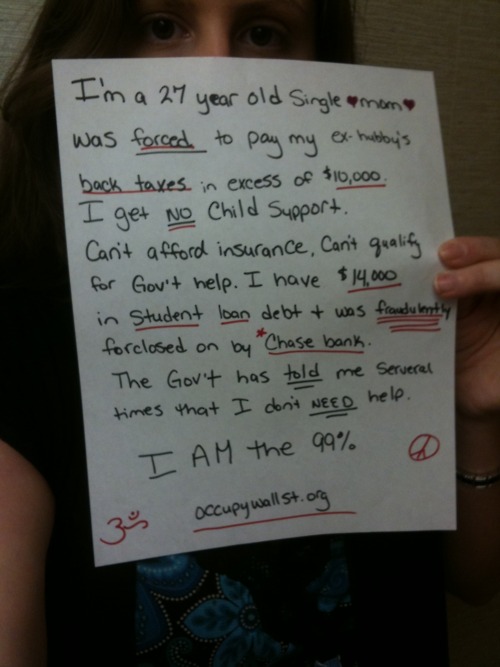 I'm a 27 year old Single ♥mom♥
was forced to pay my ex-hubby's
back taxes in excess of $10,000.
I get NO Child Support.
Can't afford insurance, Can't qualify
for Gov't help. I have $14,000
in Student loan debt + was fraudulently
forclosed on by *Chase bank.
The Gov't has told me Serveral
times that I don't NEED help.
I AM the 99%
occupywallst.org
ॐ